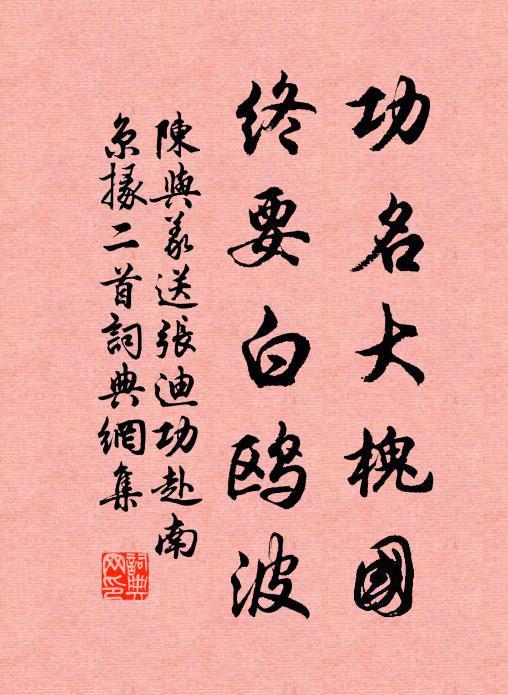 功名大槐國
終要白鷗波
陳與義送張迪功赴南
京掾二首詞典網集
詞典網印